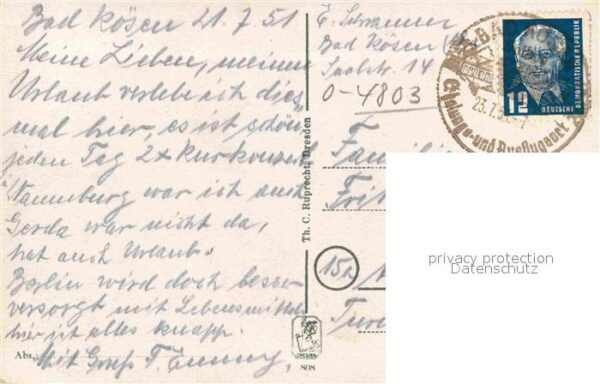 Bad Kösen 21.7.51
Meine Lieben, meinen
Urlaub verlebe ich dies
mal hier, es ist schön
jeden Tag 2x Kurkonzert
Naumburg war ich auch
Gerda war nicht da,
hat auch Urlaub.
Berlin wird doch besser
versorgt mit Lebensmittel
hier ist alles knapp.
Abs.:
Mit Gruß T. Emmy,
Th. C. Ruprecht, Dresden
E. Schramer
Bad Kösen
Saalstr. 14
0-4803
Familie
Frit
15a
NOS
BAD
23.7.51-7
Erholungs- und Ausflugsort
12
DEUTSCHE
DEMOKRATISCHE REPUBLIK
privacy protection
Datenschutz